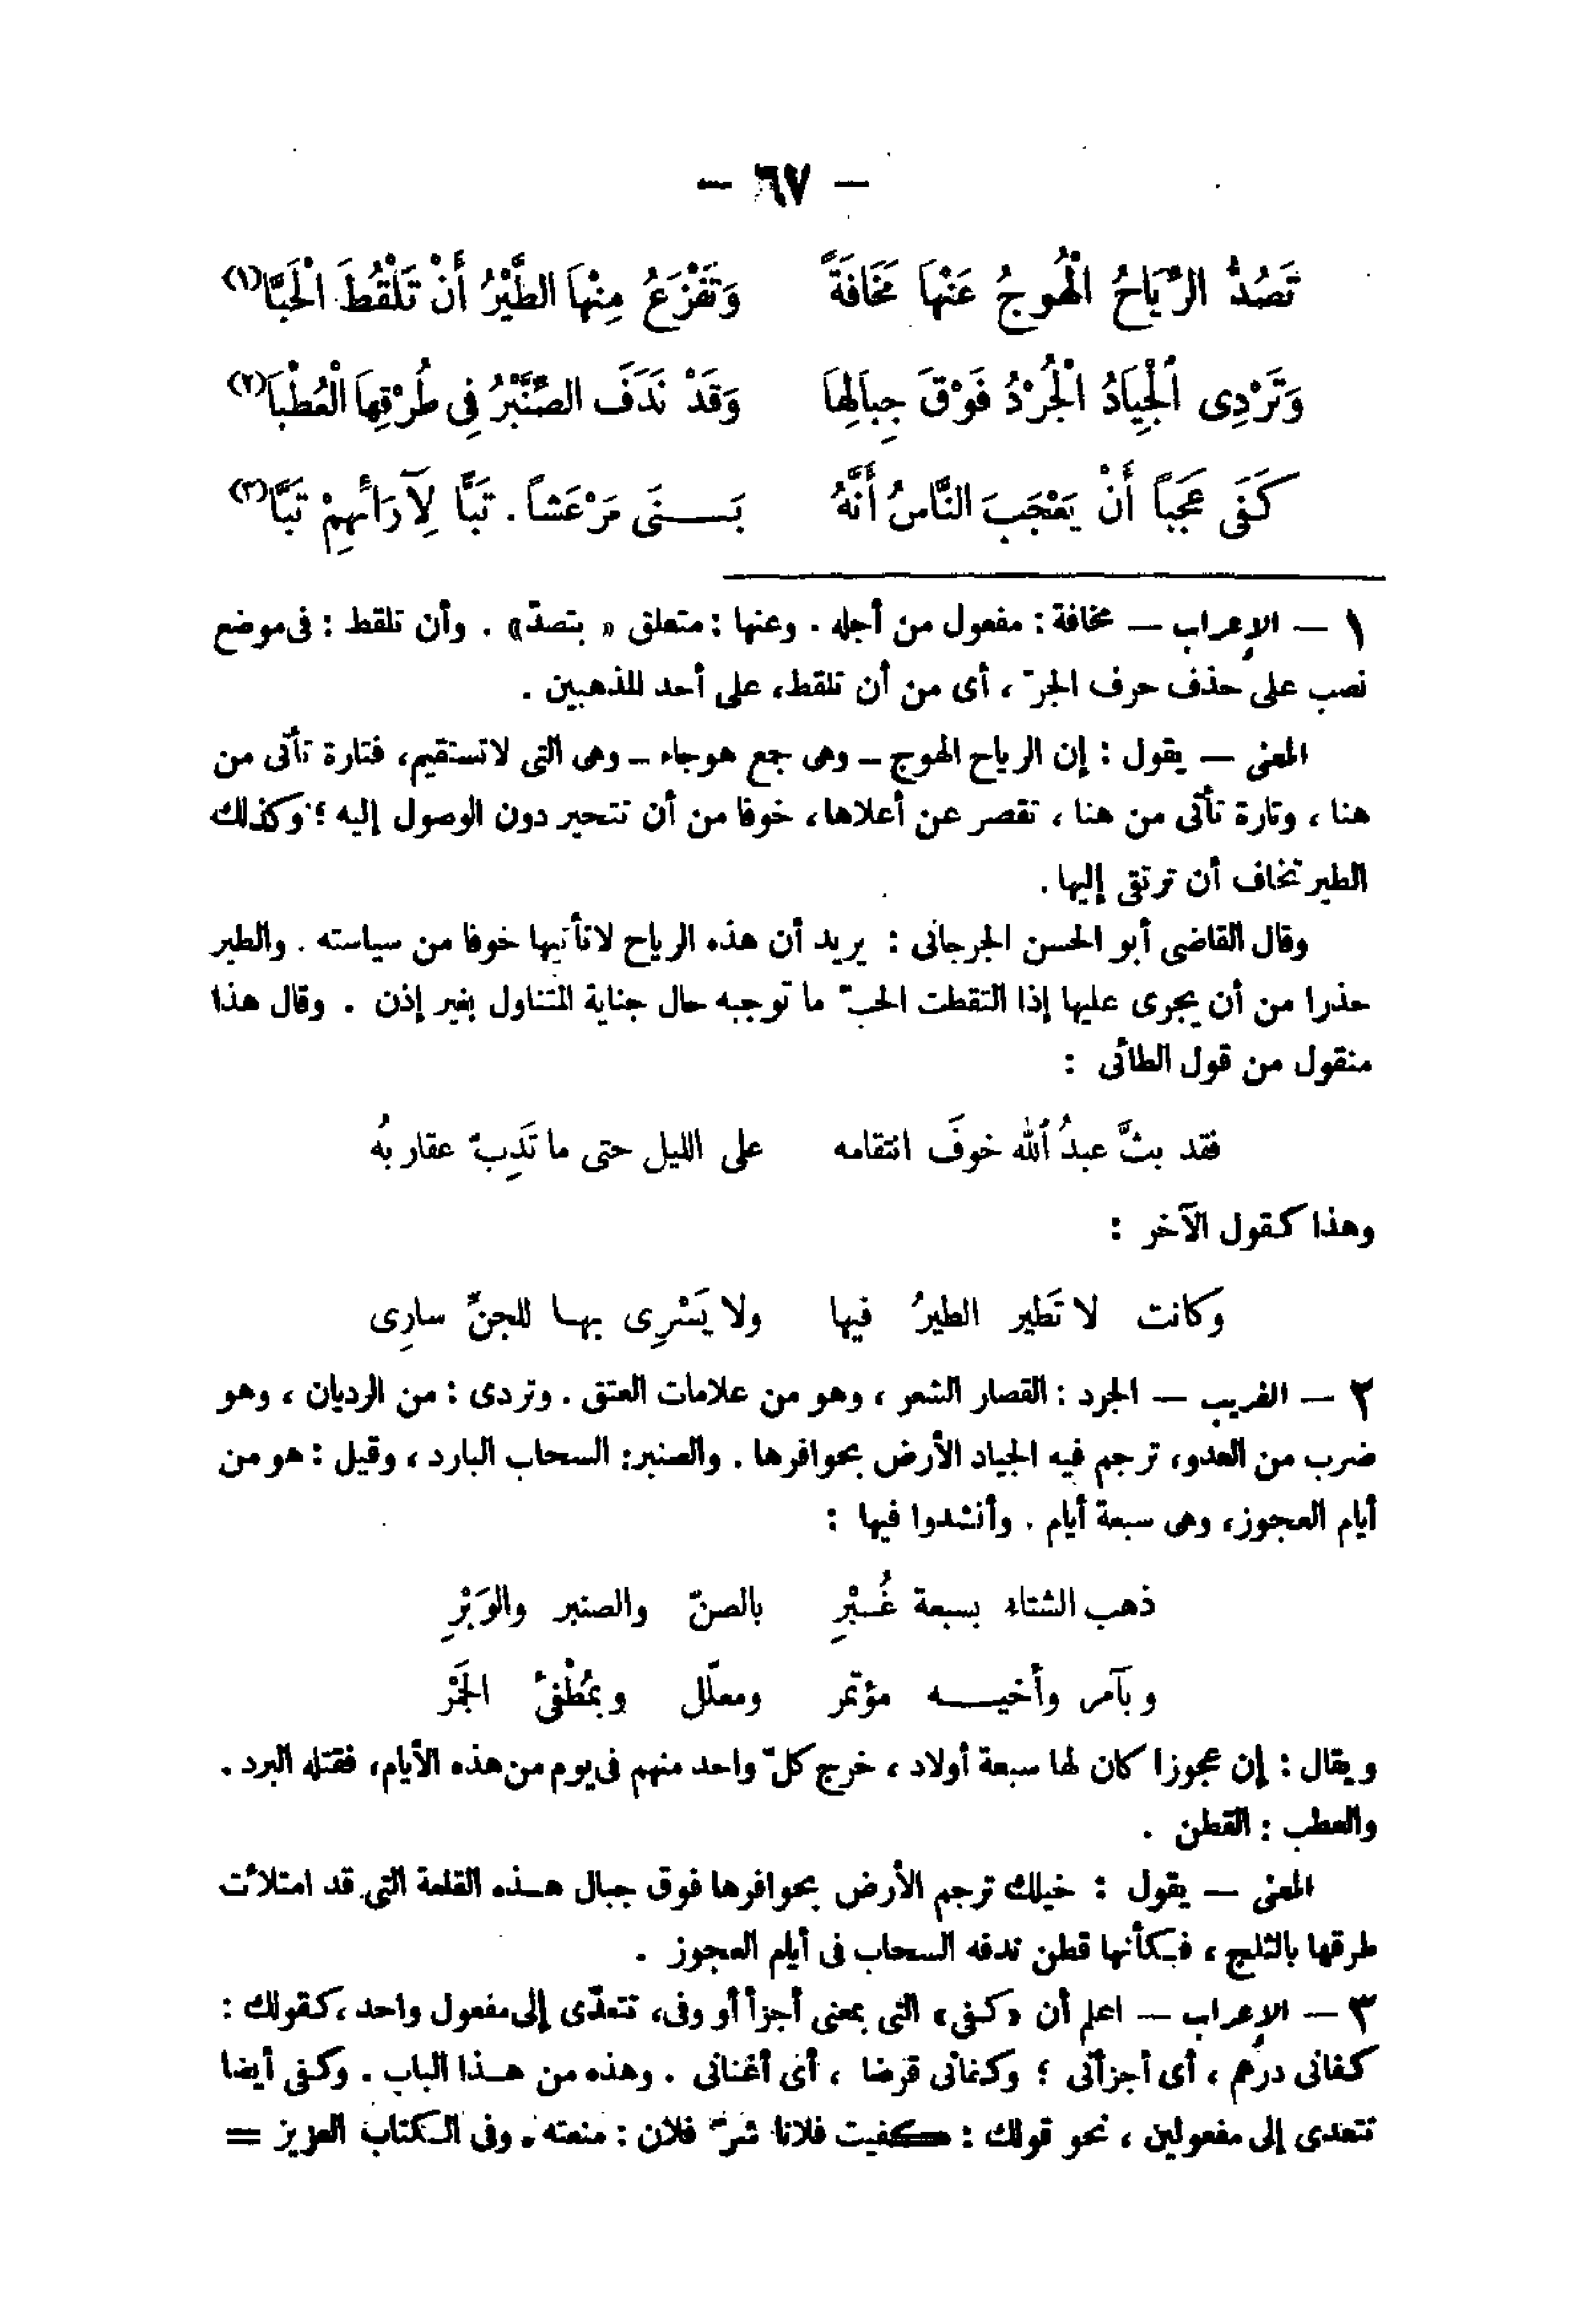 — ٦٧ —
تَصُدُّ الرِّيَاحُ الْهُوجُ عَنْهَا مَخَافَةً وَتَفْزَعُ مِنْهَا الطَّيْرُ أَنْ تَلْقُطَ الْحَبَّا(١)
وَتَرْدِى الْجِيَادُ الْجُرْدُ فَوْقَ جِبَالِهَا وَقَدْ نَدَفَ الصِّنَّبْرُ فِى طُرْقِهَا الْعُطْبَا(٢)
كَفَى عَجَباً أَنْ يَعْجَبَ النَّاسُ أَنَّهُ بَـنَى مَرْعَشاً . تَبًّا لِآرَائِهِمْ تَبَّا(٣)
١ — الإعراب — مخافة : مفعول من أجله . وعنها : متعلق « بتصدّ» . وأن تلقط : فى موضع
نصب على حذف حرف الجرّ ، أى من أن تلقط، على أحد المذهبين .
المعنى — يقول : إن الرياح الهوج — وهى جمع هوجاء — وهى التى لا تستقيم، فتارة تأتى من
هنا ، وتارة تأتى من هنا ، تقصر عن أعلاها، خوفا من أن تتحير دون الوصول إليه ؛ وكذلك
الطير تخاف أن ترتقى إليها .
وقال القاضى أبو الحسن الجرجانى : يريد أن هذه الرياح لا تأتيها خوفا من سياسته . والطير
حذرا من أن يجرى عليها إذا التقطت الحبّ ما توجبه حال جناية المتناول بغير إذن . وقال هذا
منقول من قول الطائى :
فقد بثَّ عبدُ اللّٰه خوفَ انتقامه على الليل حتى ما تَدِبّ عقاربُه
وهذا كقول الآخر :
وكانت لا تَطير الطيرُ فيها ولا يَسْرِى بهـا للجنِّ سارِى
٢ — الغريب — الجرد : القصار الشعر ، وهو من علامات العتق . وتردى : من الرديان ، وهو
ضرب من العدو، ترجم فيه الجياد الأرض بحوافرها . والصنبر: السحاب البارد ، وقيل : هو من
أيام العجوز، وهى سبعة أيام . وأنشدوا فيها :
ذهب الشتاء بسبعة غُـبْرِ بالصنّ والصنبر والوَبْرِ
وبآمر وأخيـــه مؤتمر ومعلّل وبمُطْفىُٔ الجَمْر
ويقال : إن عجوزا كان لها سبعة أولاد ، خرج كلّ واحد منهم فى يوم من هذه الأيام، فقتله البرد .
والعطب : القطن .
المعنى — يقول : خيلك ترجم الأرض بحوافرها فوق جبال هـذه القلعة التى قد امتلأت
طرقها بالثلج ، فـكأنها قطن ندفه السحاب فى أيام العجوز .
٣ — الإعراب — اعلم أن «كفى» التى بمعنى أجزأ أو وفى، تتعدّى إلى مفعول واحد ، كقولك :
كفانى درهم ، أى أجزأنى ؛ وكفانى قرضا ، أى أغنانى . وهذه من هـذا الباب . وكفى أيضا
تتعدى إلى مفعولين ، نحو قولك : كفيت فلانا شرّ فلان : منعته . وفى الـكتاب العزيز =